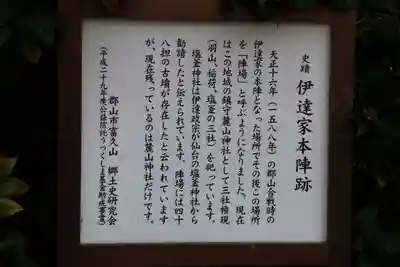 史蹟 伊達家本陣跡
天正十六年(一五八八年)の郡山合戦時の
伊達家の本陣となった場所でその後この場所
を「陣場」と呼ぶようになりました。現在
はこの地域の鎮守麓山神社として三社権現
(羽山、稲荷、塩釜の三社)を祀っています。
塩釜神社は伊達政宗が仙台の塩釜神社から
勧請したと伝えられています。陣場には四十
八担の古墳が存在したと云われています
が、現在残っているのは麓山神社だけです。
郡山市富久山 郷土史研究会
(平成二十九年度公益信託うつくしま基金助成事業)